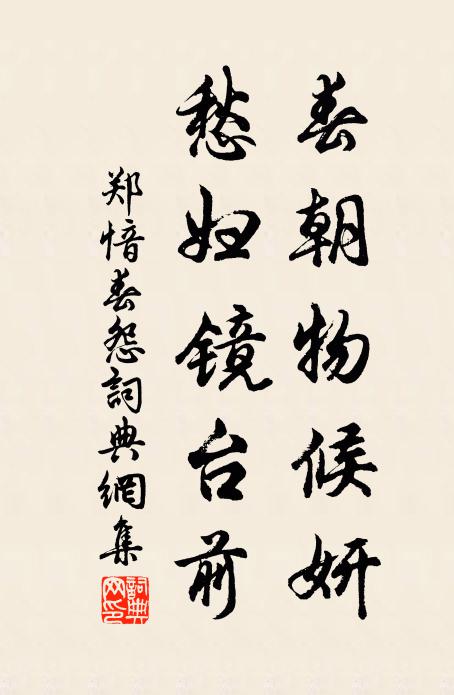 春朝物候妍
愁妇镜台前
郑愔春怨詞典網集
詞典网印